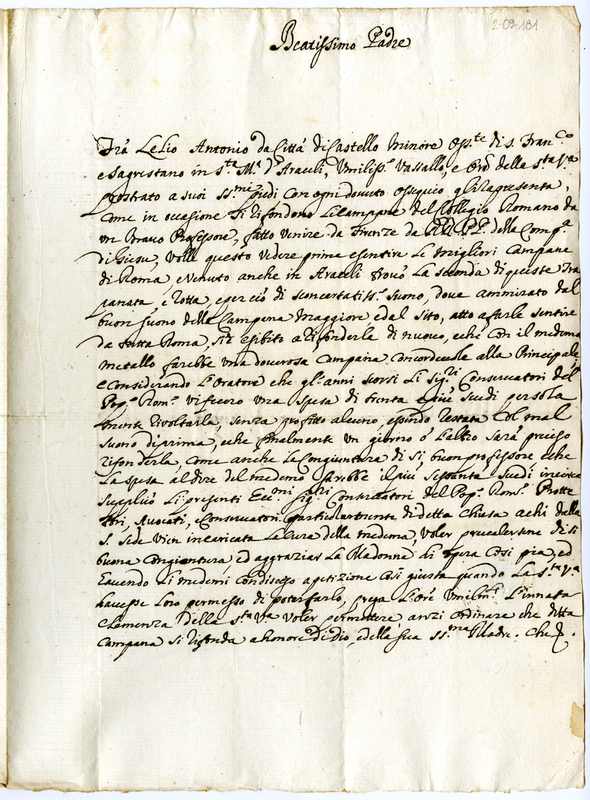 2-09-181
Beatissimo Padre
Frà Lelio Antonio da Città di Castello Minore Oss.te di S. Fran.co
e Sagrestano in S.ta M.a d'Araceli, Umiliss.o Vassallo, e Orē della S.tà V.a
prostrato a suoi SS.mi Piedi con ogni dovuto ossequio gli rapresenta,
come in occasione di rifondere le campane del Collegio Romano da
un bravo Professore, fatto venire da Firenze da RR. PP. della Comp.a
di Giesù, volle questo vedere prima e sentire le migliori Campane
di Roma, e venuto anche in Araceli trovò la seconda di queste tra
panata, e rotta, e per ciò di sconcertatiss.o suono, dove ammirato dal
buon suono della Campana Maggiore e dal sito, atto a farle sentire
da tutta Roma, si è esibito a rifonderla di nuovo, e che con il medemo
metallo farebbe una doverosa Campana concordevole alla Principale
e considerando l'Oratore che gl'anni scorsi li Sig.ri Conservatori del
Pop.o Rom.o vi fecero una spesa di trenta e più scudi per sola
mente rivoltarla, senza profitto alcuno, essendo restata col mal
suono di prima, e che finalmente un giorno ò l'altro sarà preciso
rifonderla, come anche la congiuntura di sì buon professore e che
la spesa al dire del medemo sarebbe il più sessanta scudi incirca
supplicò li presenti Ecc.mi Sig.ri Conservatori del Pop.o Rom.o Protte
ttori, Avocati, Conservatori particolarmente di detta Chiesa a chi dalla
S. Sede vien incaricata la cura della medema, voler prevalersene di sì
buona congiontura, ed aggraziar la Madonna di opera così pia, ed
havendo li medemi condisceso a petizione così giusta quando la S.tà V.a
havesse loro permesso di poterlo farlo, prega l'Orē umilm.te l'innata
Clemenza della S.tà V.a voler permettere, anzi ordinare che detta
Campana si rifonda a honore di Dio, e della sua SS.ma Madre. Che &.